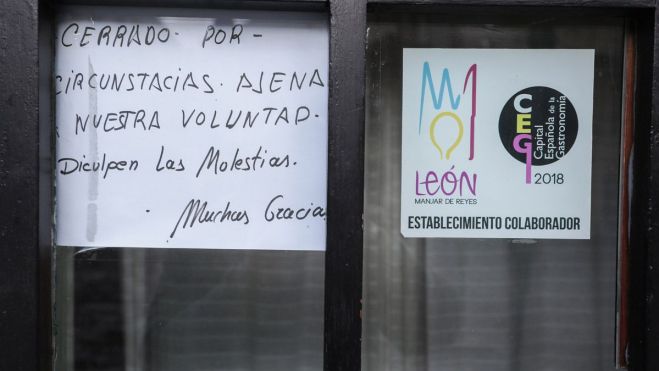 CERRADO POR -
CIRCUNSTACIAS. AJENA
A NUESTRA VOLUNTAD.
Diculpen Las Molestias.
. Muchas Gracias
LEÓN
MANJAR DE REYES
CEG
Capital
Española de la
Gastronomía
2018
ESTABLECIMIENTO COLABORADOR